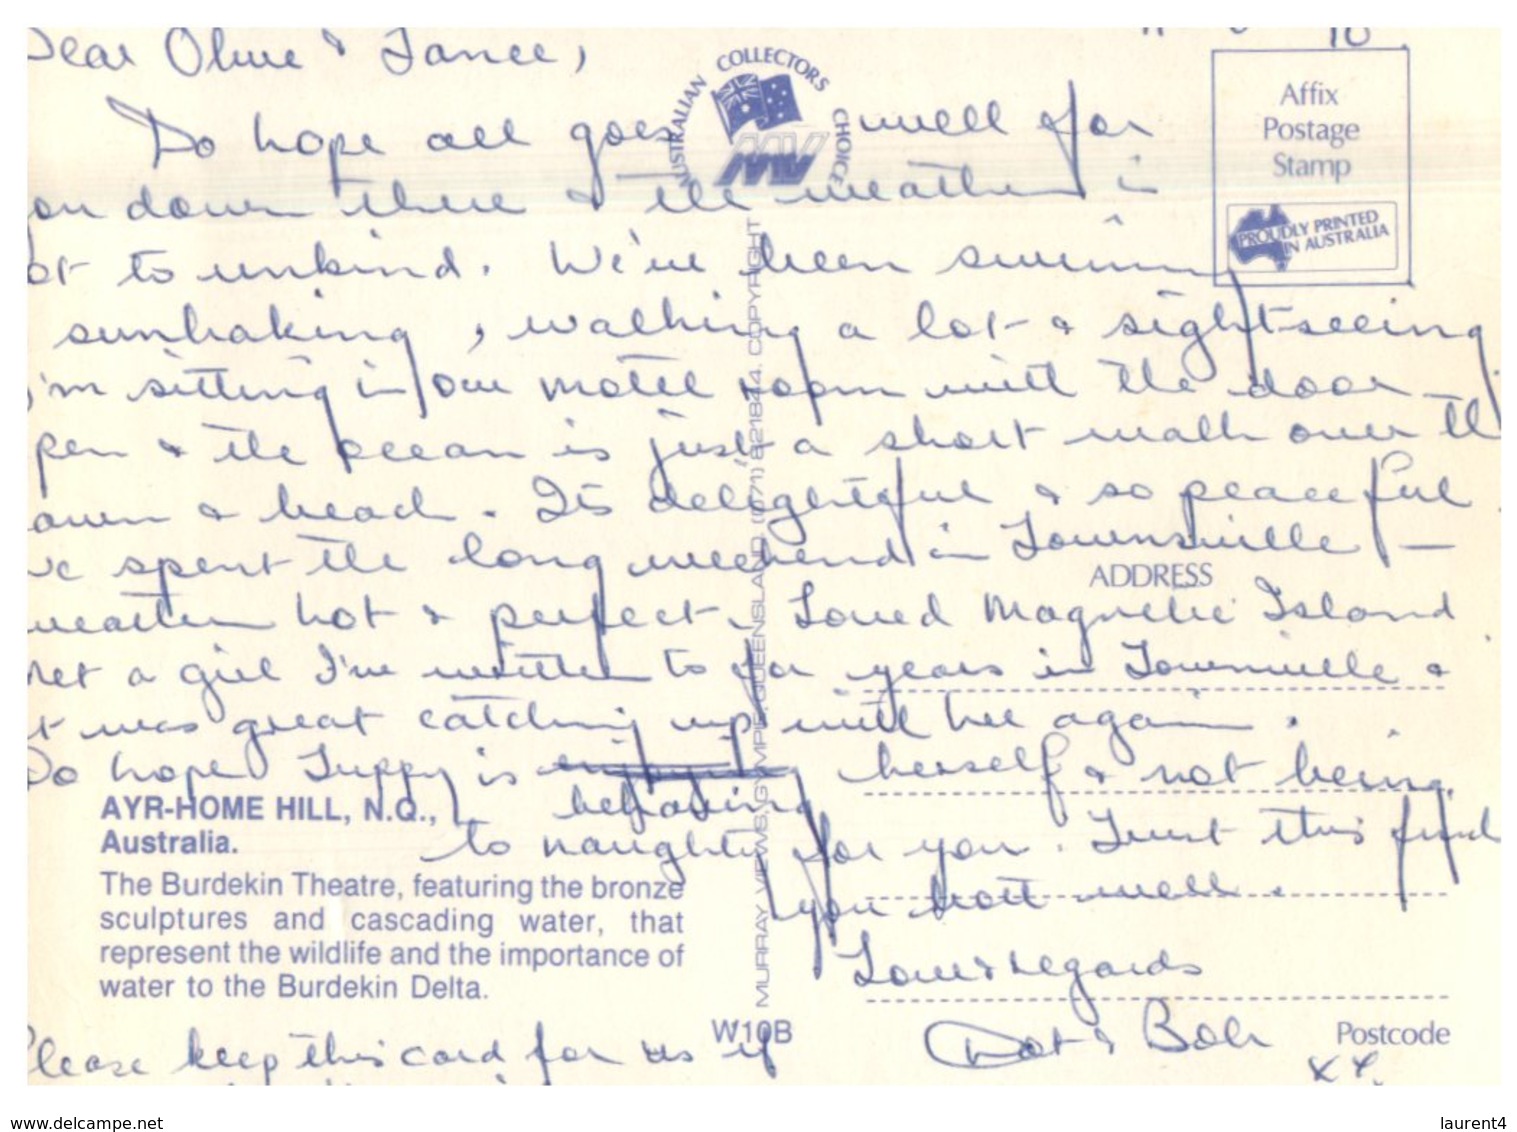 Dear Olive & Lance,
Do hope all goes well for
you down there & the weather is
not to unkind. We've been swimming
sunbaking, walking a lot & sightseeing
I'm sitting in our motel room with the door
open & the ocean is just a short walk over the
lawn & beach. It's delightful & so peaceful.
We spent the long weekend in Townsville —
weather hot & perfect. Loved Magnetic Island
Met a girl I've written to for years in Townsville &
it was great catching up with her again.
Do hope Tuppy is behaving herself & not being
to naughty for you. Trust this finds
you both well.
Love & regards
Dot & Bob
XX.
Please keep this card for us if
AUSTRALIAN COLLECTORS CHOICE
MV
Affix
Postage
Stamp
PROUDLY PRINTED
IN AUSTRALIA
MURRAY VIEWS, GYMPIE, QUEENSLAND (071) 821844. COPYRIGHT
ADDRESS
AYR-HOME HILL, N.Q.,
Australia.
The Burdekin Theatre, featuring the bronze
sculptures and cascading water, that
represent the wildlife and the importance of
water to the Burdekin Delta.
W10B
Postcode
www.delcampe.net
laurent4